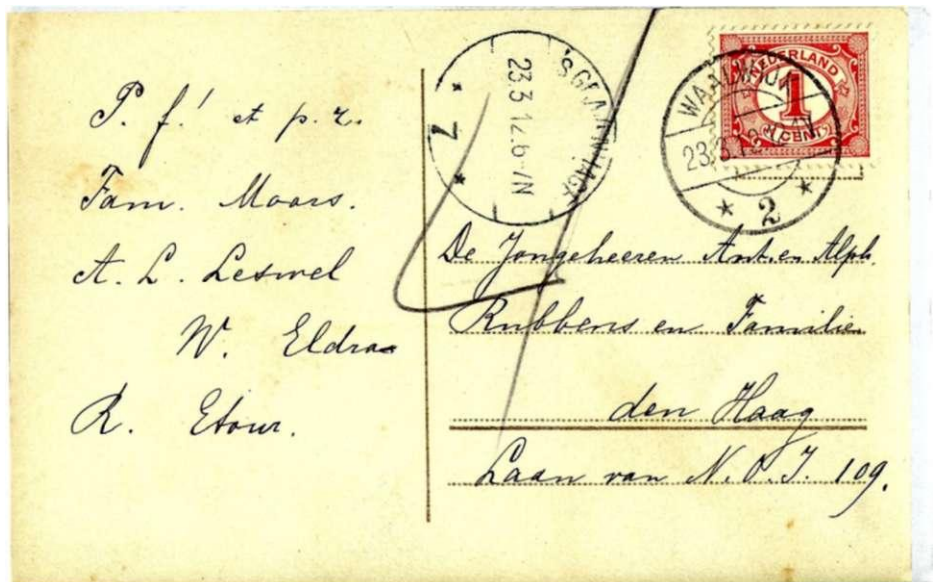 P. f.! et p. r.
Fam. Moors.
A. L. Leswel
W. Eldra
R. Etour.
'S GRAVENHAGE
23.3.12.6-7N
7
NEDERLAND
1
CENT
WAALWIJK
23.3.12
2
De Jongeheeren Ant. en Alph.
Rubbens en Familie
den Haag
Laan van N. O. I. 109.